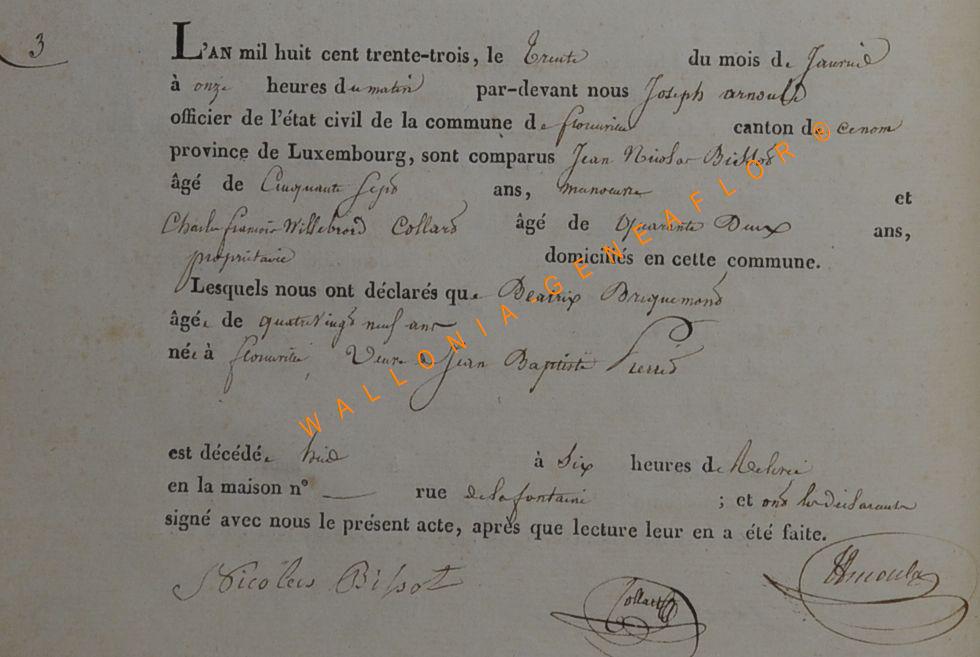 3
L'AN mil huit cent trente-trois, le Trente du mois de Janvier
à onze heures du matin par-devant nous Joseph arnould
officier de l'état civil de la commune de florenville canton de cenom
province de Luxembourg, sont comparus Jean Nicolas Bissot
âgé de Cinquante Sept ans, manoeuvre et
Charles françois Willebrord Collard âgé de Quarante Deux ans,
propriétaire domiciliés en cette commune.
Lesquels nous ont déclarés que Beatrix Briquemont
âgée de quatre Vingt neuf ans
née à Veuve de Jean Baptiste Pierret
est décédée hier à Six heures de Relevée
en la maison n° — rue de la fontaine ; et ont les déclarants
signé avec nous le présent acte, après que lecture leur en a été faite.
Nicolas Bissot Collard Arnould
WALLONIA-GENEAFLOR ©